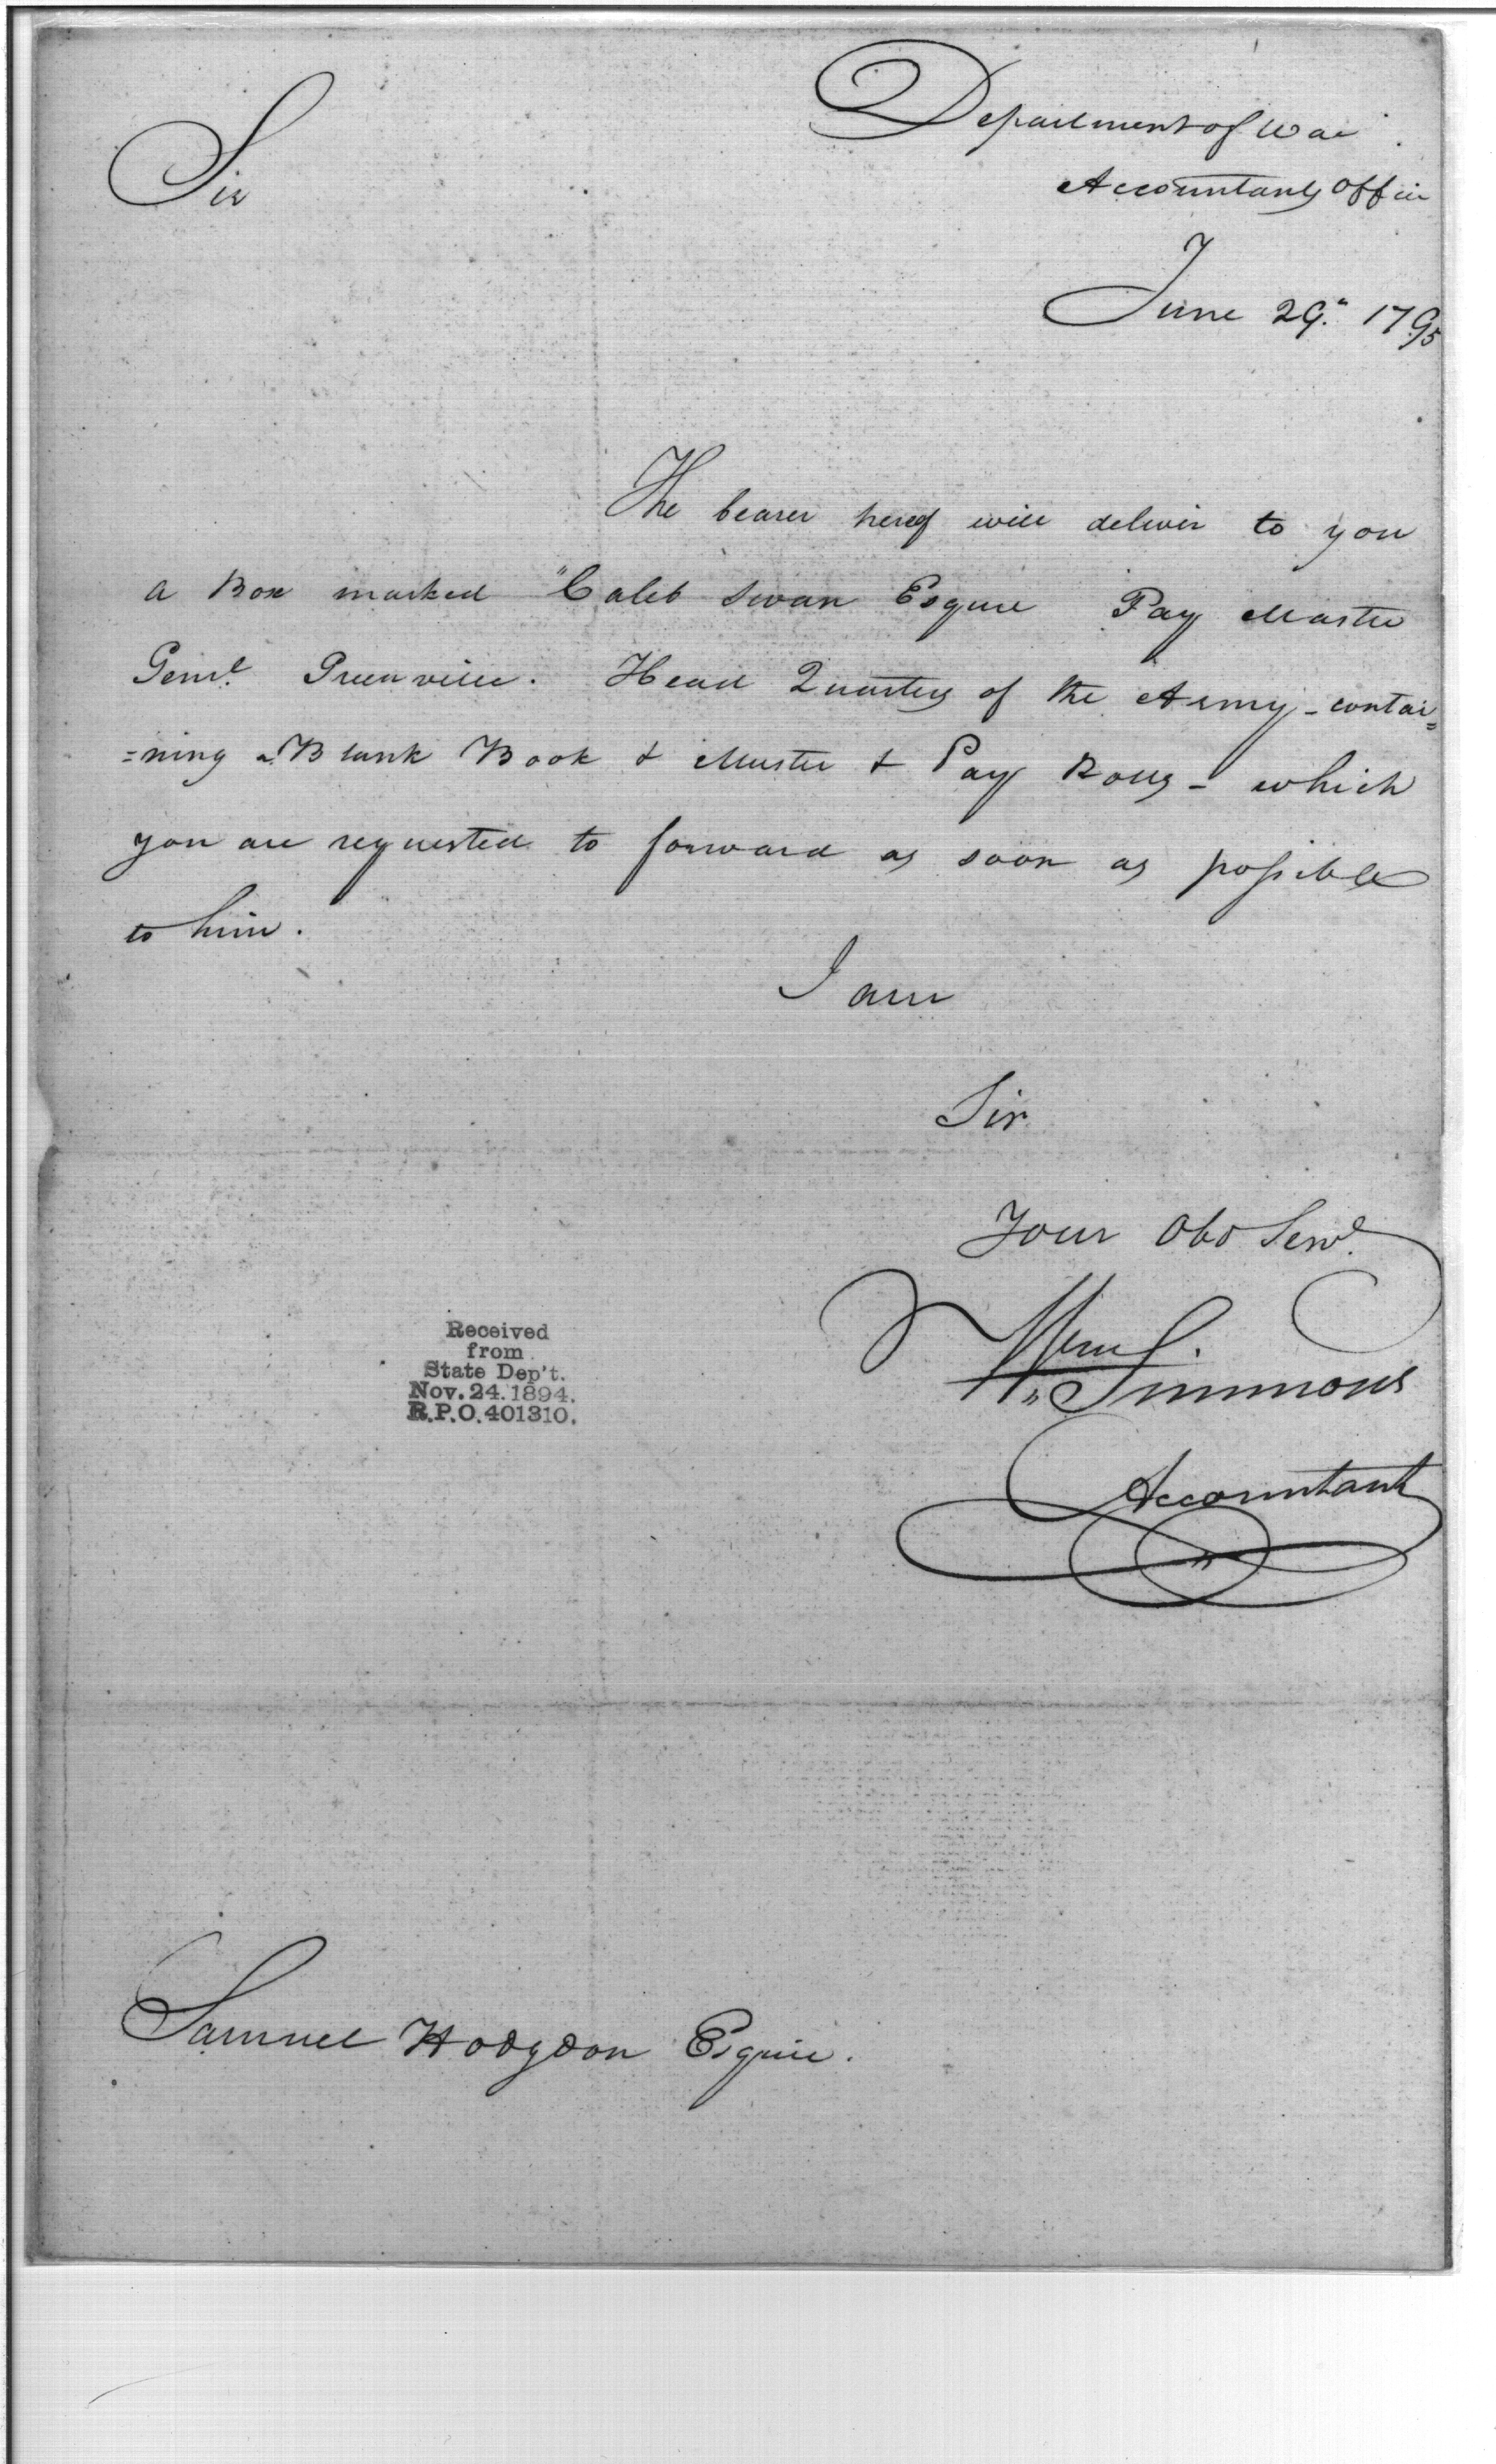 Department of War
Sir
Accountants Office
June 29. 1795
The bearer hereof will deliver to you
a Box marked "Caleb Swan Esquire Pay Master
Genl. Greenville. Head Quarters of the Army - contai=
=ning a Blank Book & Muster & Pay Rolls - which
you are requested to forward as soon as possible
to him.
I am
Sir
Your Obd Servt.
Wm. Simmons
Accountant
Received
from
State Dep't.
Nov. 24. 1894.
R.P.O. 401310.
Samuel Hodgdon Esquire.